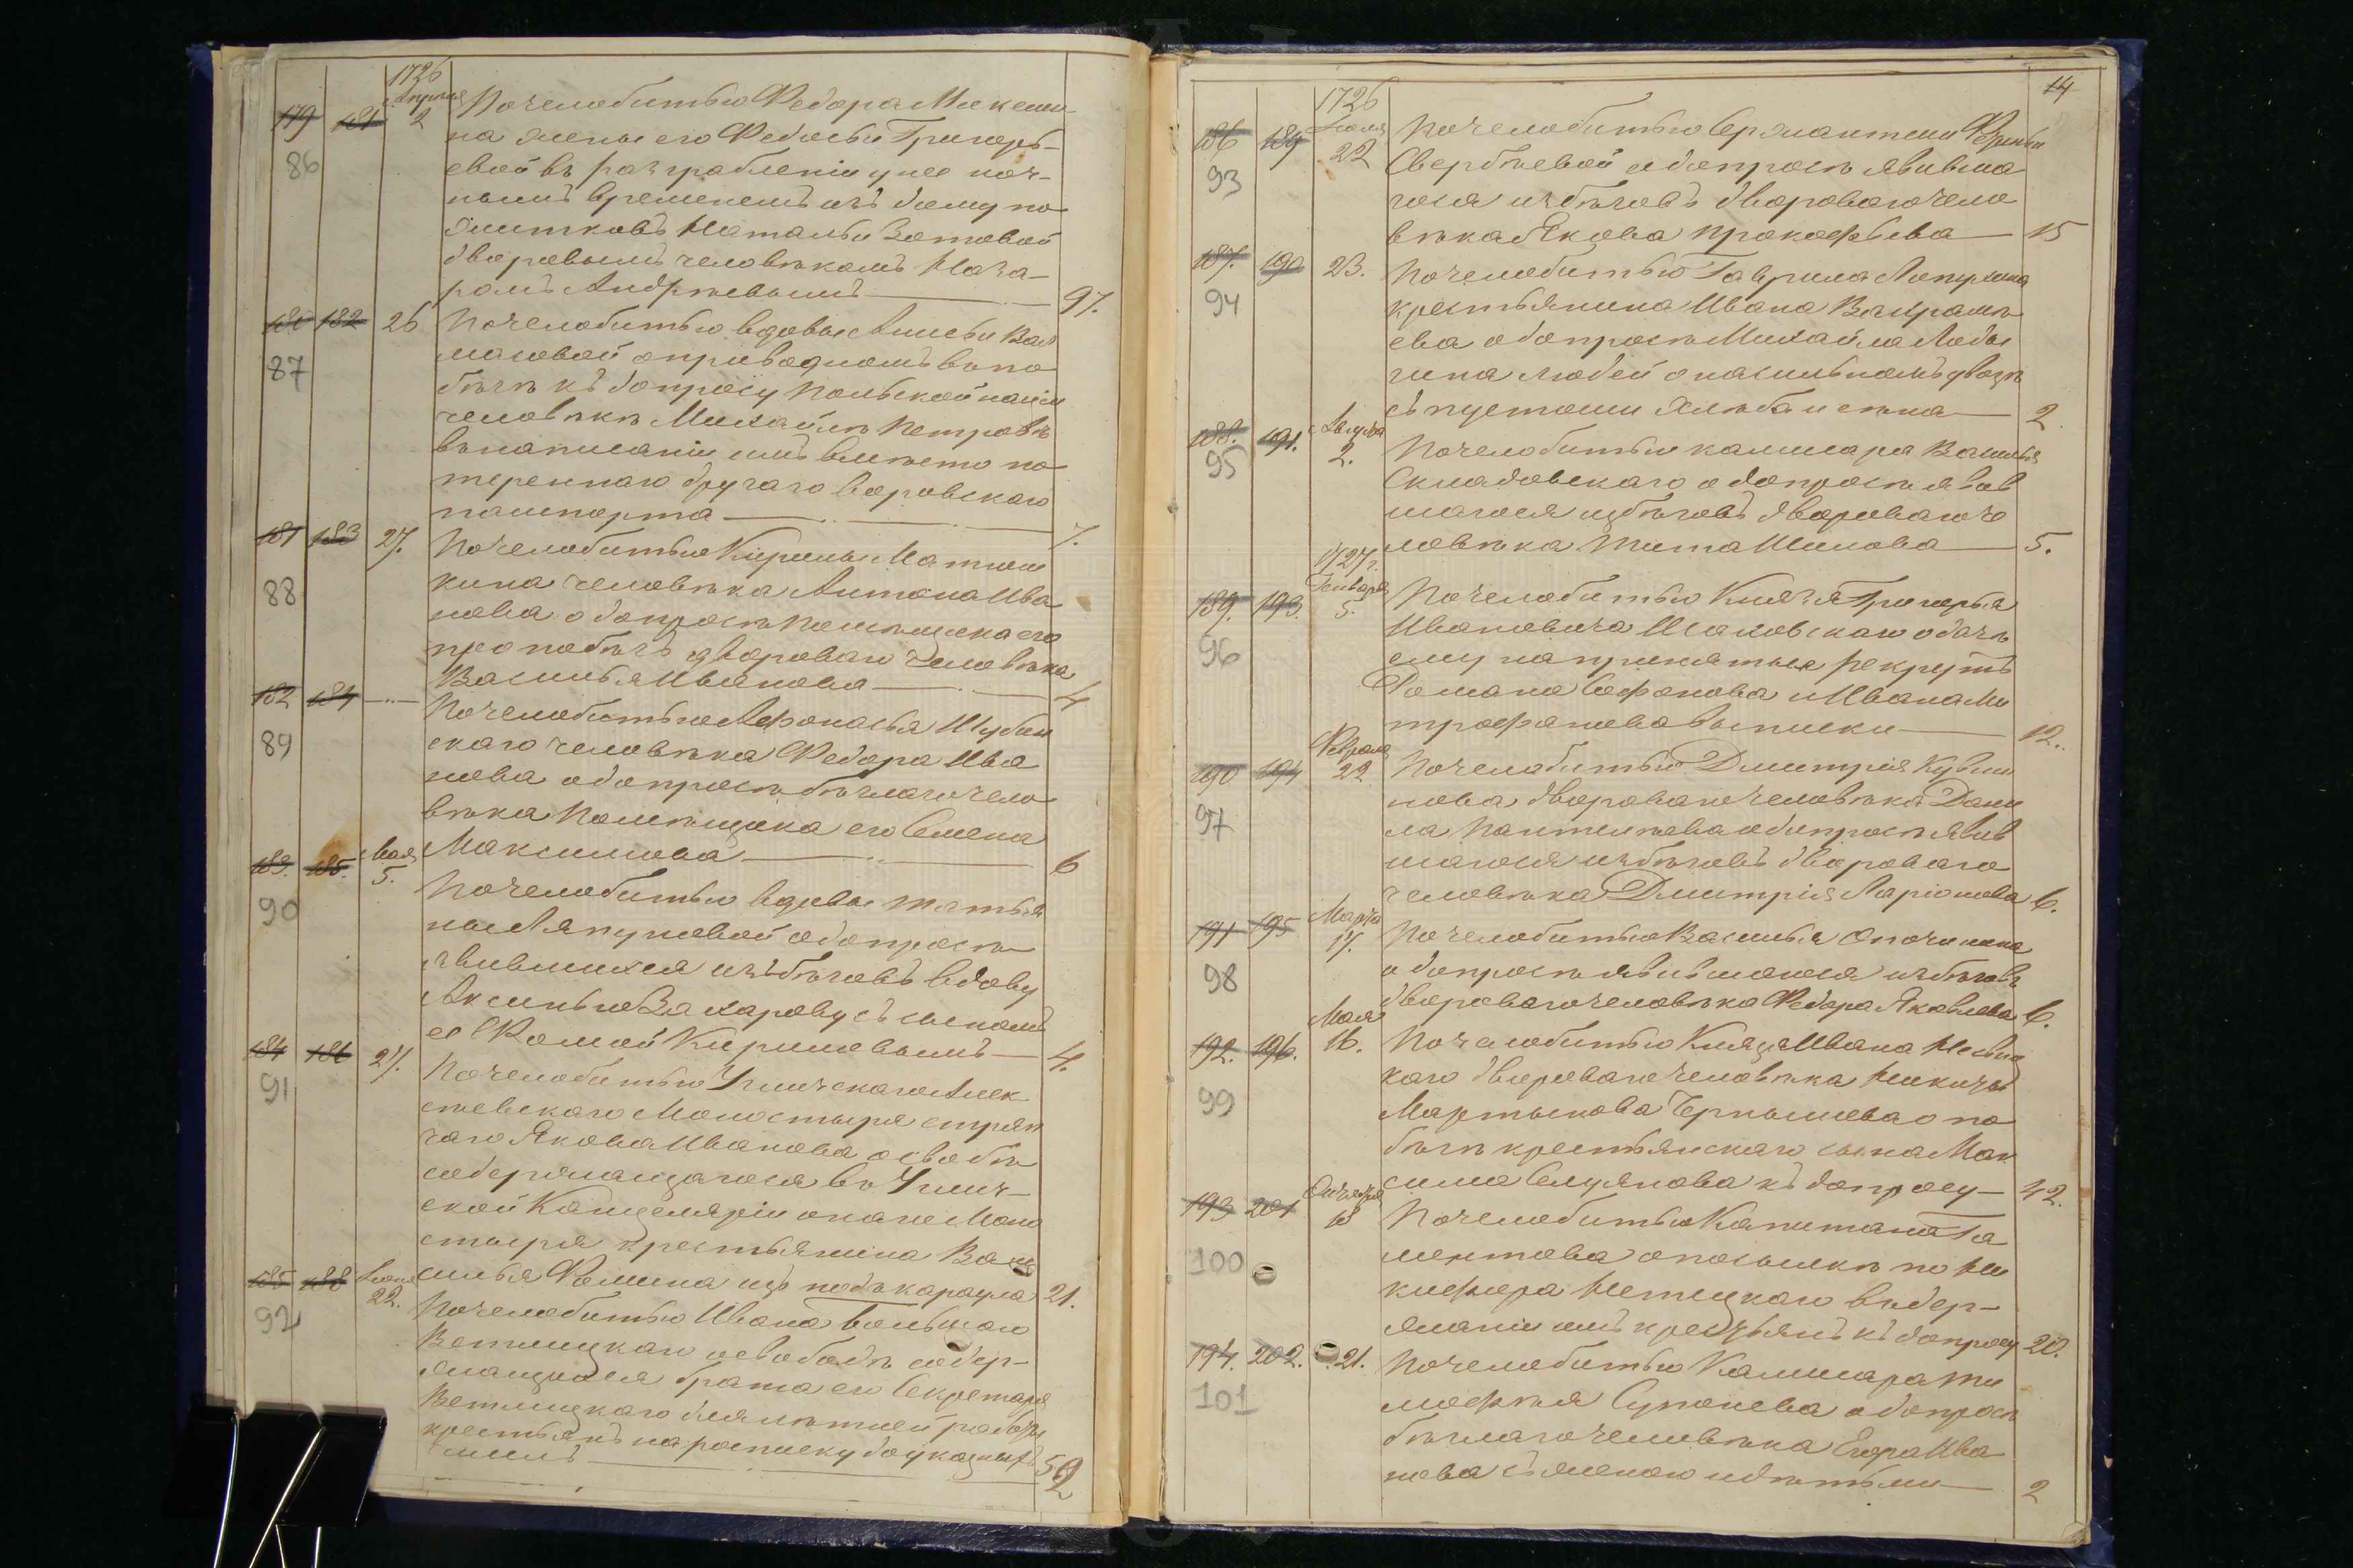 1726
Апреля
179 181 2 По челобитью Федора Мякини-
86
на жены его Федосьи Григорь-
евой въ разграблении у нее ноч-
нымъ временемъ изъ дому по-
житковъ Натальи Зотовой
дворовымъ человѣкомъ Наза-
ромъ Андрѣевымъ 97.
180 182 26 По челобитью вдовы
87
о приводномъ въ по
бѣгѣ къ допросу Польской нации
человѣкѣ Михайлѣ Петровѣ
въ написании имъ вмѣсто по
тереннаго другаго воровскаго
пашпорта 7.
181 183 27. По челобитью Кирилы Матюш
88
кина человѣка Антона Ива
нова о допросѣ помѣщика его
про побѣгъ двороваго человѣка
Василья Иванова 4
182 184 По челобитью Афонасья Шубин
89
скаго человѣка Федора Ива
нова о допросѣ бѣглаго чело
вѣка помѣщика его Семена
Максимова 6
Мая
183. 185. 5. По челобитью вдовы Татья
90
ны Ляпуновой о допросѣ
явившихся изъ бѣговъ вдову
Аксинью Захарову съ сыномъ
ее Фомой Кириловымъ 4.
184 186 27. По челобитью Углическаго Алек
91
сѣевскаго Моностыря стряп
чаго Якова Иванова о свободѣ
содержащагося въ Углич-
ской Канцелярии онаго Моно
стыря крестьянина Ва
силья Фомина изъ подъ караула 21.
185 188 Июня
22. По челобитью Ивана большаго
92
Ветлицкаго о свободѣ содер-
жащихся брата его Секретаря
Ветлицкаго для лѣтней работы
крестьянъ на росписку до указныхъ
52
14
1726
Июля
186 189 22 По челобитью Сержантши
93
Свербѣевой о допросѣ явивша
гося изъ бѣговъ двороваго чело
вѣка Якова Прокофьева 15
187. 190 23. По челобитью Гаврила Лопухина
94
крестьянина Ивана
ева о допросѣ Михайла Лоды
гина людей о насильномъ увозѣ
съ пустоши хлѣба и сѣна 2
Августа
188. 191. 2. По челобитью камисара Василья
95
Складовскаго о допросѣ явив
шагося изъ бѣговъ двороваго че
ловѣка Тита Шилова 5.
1727 г.
Генваря
189. 193. 5. По челобитью Князя Григорья
96
Ивановича Шаховскаго о дачѣ
ему на принятыя рекрутъ
Романа Сафонова и Ивана Ми
трофанова выписки 12.
Февраля
190 194 22 По челобитью Дмитрия Кувши
97
нова двороваго человѣка Дани
ла Пантелѣева о допросѣ явив
шагося изъ бѣговъ двороваго
человѣка Дмитрия Ларионова 6.
Марта
191 195 17. По челобитью Василья Опочинина
98
о допросѣ явившагося изъ бѣговъ
двороваго человѣка Федора Яковлева 6.
Мая
192. 196. 16. По челобитью Князя Ивана Несвиц
99
каго двороваго человѣка Никиты
Мартынова Чернышева о по
бѣгѣ крестьянскаго сына Мак
сима Селуянова къ допросу 42.
Октября
193 201 13 По челобитью Капитана Га
100
лентова о посылкѣ по Ни
кифора Нетецкаго въ дер-
жании имъ крестьянъ къ допросу 20.
194. 202. 21. По челобитью Камисара Ти
101
мофѣя Супонева о допросѣ
бѣглаго человѣка Егора Ива
нова съ женою и дѣтьми 2